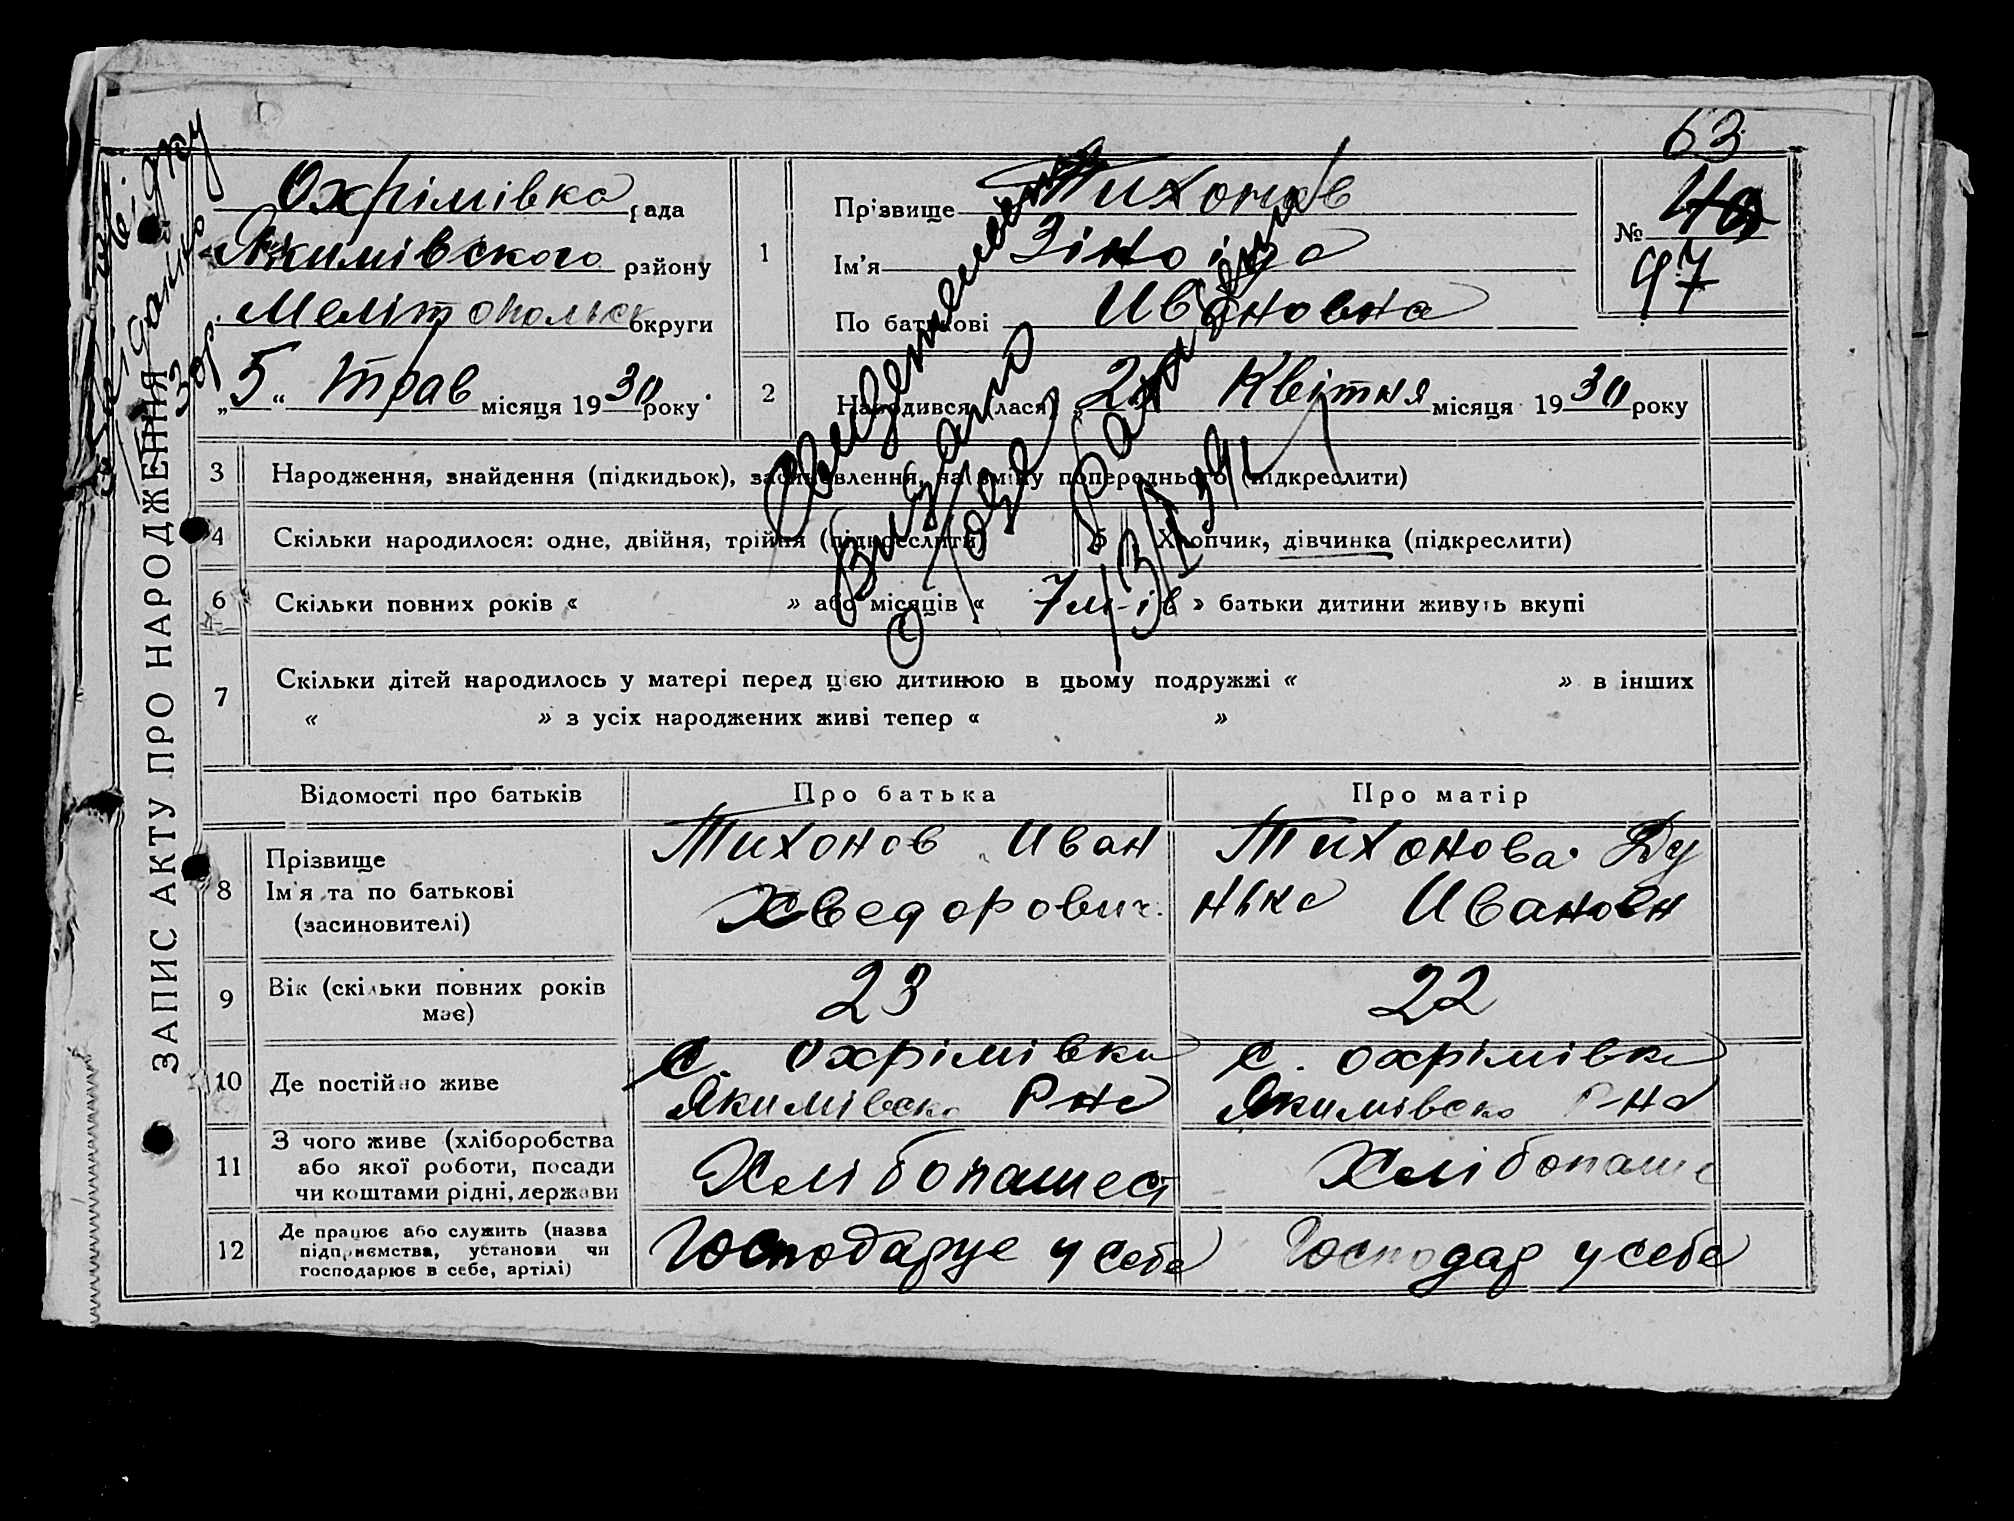 63
Охрімівка рада
Якимівського району
Мелітопольск округи
„5“ Трав місяця 1930 року
1
Прізвище Тихонов
Ім'я Зіноіда
По батькові Ивановна
№ 40
97
2
Народився (лася) „2 Квітня місяця 1930 року
ЗАПИС АКТУ ПРО НАРОДЖЕННЯ
Свидетельство
видано
о
13/I 39
3 Народження, знайдення (підкидьок), засиновлення, на зміну попереднього (підкреслити)
4 Скільки народилося: одне, двійня, трійня (підкреслити) 5 Хлопчик, дівчинка (підкреслити)
6 Скільки повних років « » або місяців « 7 м-ів » батьки дитини живуть вкупі
7 Скільки дітей народилось у матері перед цією дитиною в цьому подружжі « » в інших
« » з усіх народжених живі тепер « »
Відомості про батьків Про батька Про матір
8 Прізвище
Ім'я та по батькові
(засиновителі)
Тихонов Иван
Хведорович.
Тихонова Ду
нька Ивановн
9 Вік (скільки повних років
має)
23
22
10 Де постійно живе
с. Охрімівка
Якимівско Р на
с. Охрімівка
Якимівско Р-на
11 З чого живе (хліборобства
або якої роботи, посади
чи коштами рідні, держави
Хлібопашест
Хлібопаше
12 Де працює або служить (назва
підприємства, установи чи
господарює в себе, артілі)
Господарує у себе
Господар у себе